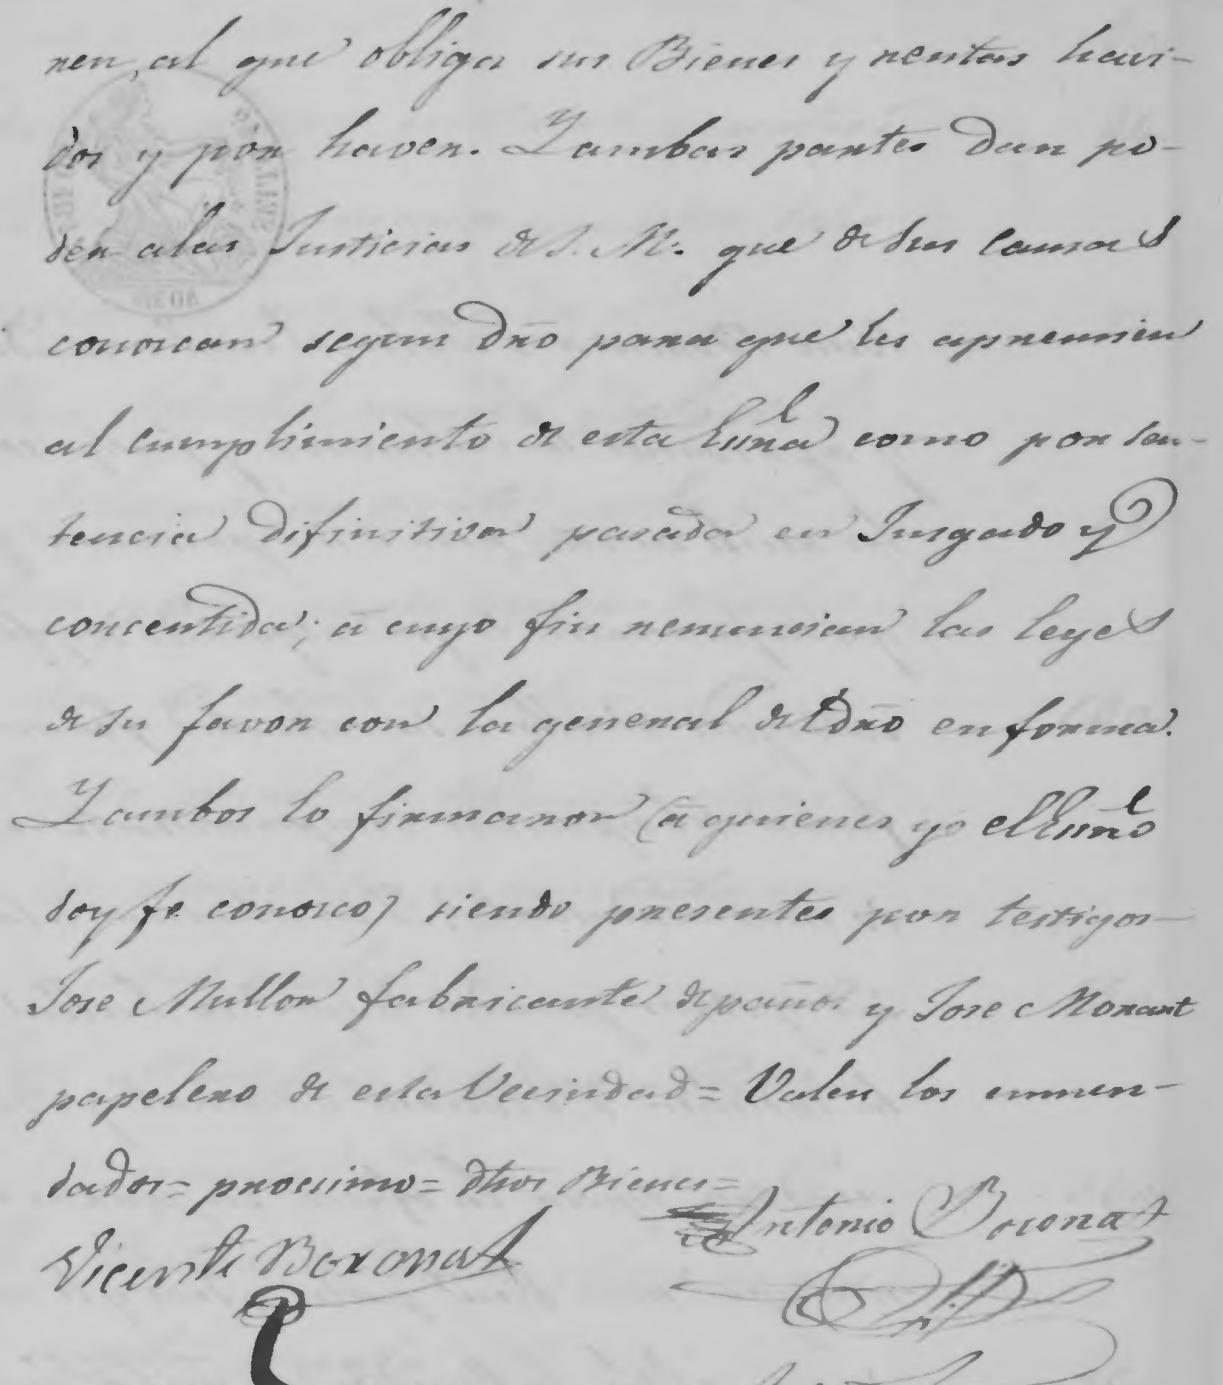 ren, al que obliga sus Bienes y rentas havi-
dos y por haver. Y ambas partes dan po-
der alas Justicias de S. M. que de sus causas
conoscan segun dro para que les apremien
al cumplimiento de esta Essña como por sen-
tencia difinitiva pasada en Jusgado y
concentida; á cuyo fin renuncian las leyes
de su favor con la general del dro en forma.
Y ambos lo firmaron (á quienes yo el Essño
doy fe conosco) siendo presentes por testigos
Jose Mullor fabricante de paños y Jose Morant
papelero de esta Vecindad = Valen los enmen-
dados = procsimo = dhos Bienes =
Antonio Boronat
Vicente Boronat